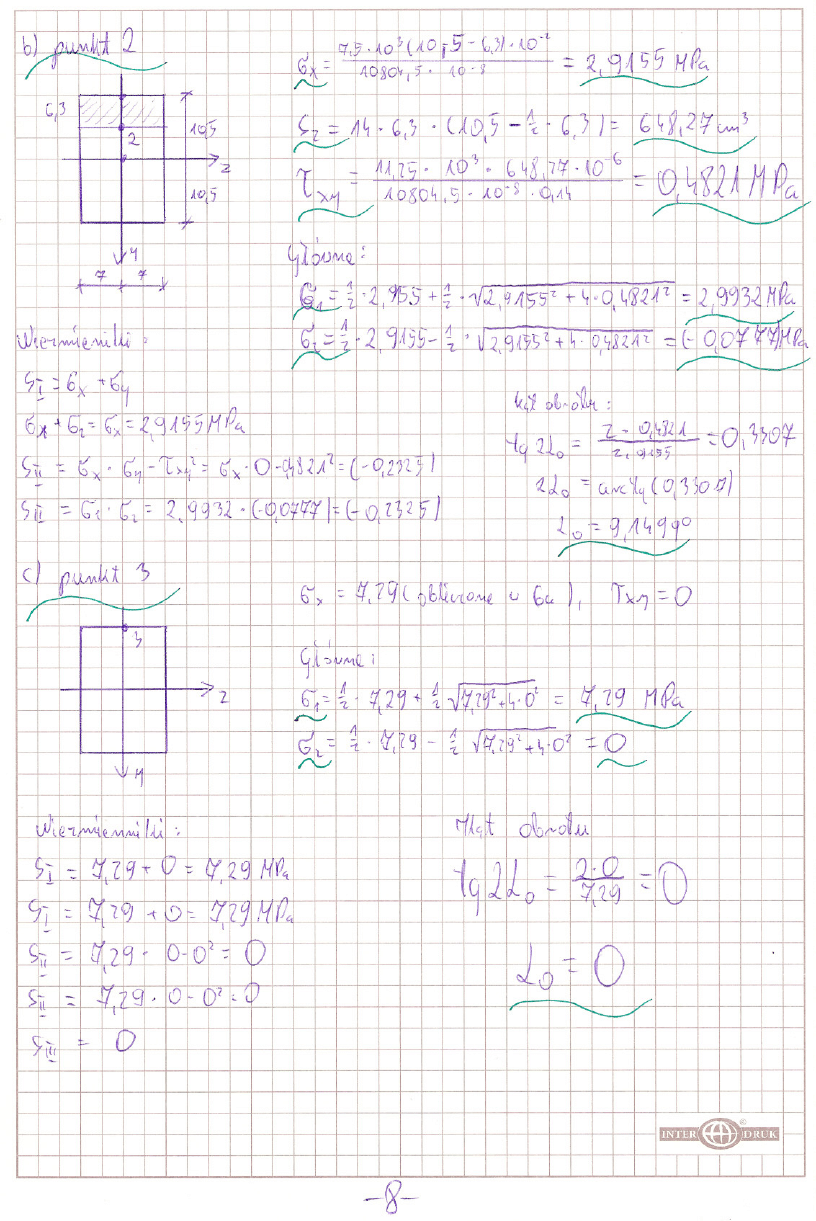 b) punkt 2
σx = 7,5·10³(10,5-6,3)·10⁻² / 10804,5·10⁻⁸ = 2,9155 MPa
6,3
10,5
2
z
10,5
y
7 7
Sz = 14·6,3·(10,5 - 1/2·6,3) = 648,27 cm³
τxy = 11,25·10³·648,27·10⁻⁶ / 10804,5·10⁻⁸·0,14 = 0,4821 MPa
Główne:
σ1 = 1/2·2,955 + 1/2·√2,9155² + 4·0,4821² = 2,9932 MPa
σ2 = 1/2·2,9155 - 1/2·√2,9155² + 4·0,4821² = (-0,0777)MPa
Niezmienniki:
SI = σx + σy
σ1 + σ2 = σx = 2,9155 MPa
SII = σx·σy - τxy² = σx·0-0,4821² = (-0,2325)
SII = σ1·σ2 = 2,9932·(-0,0777) = (-0,2325)
kąt obrotu:
tg2α₀ = 2·0,4821 / 2,9155 = 0,3307
2α₀ = arctg(0,3307)
α₀ = 9,1499°
c) punkt 3
3
z
y
σx = 7,29 (obliczone w 6a), τxy = 0
Główne:
σ1 = 1/2·7,29 + 1/2 √7,29²+4·0² = 7,29 MPa
σ2 = 1/2·7,29 - 1/2 √7,29²+4·0² = 0
Niezmienniki:
SI = 7,29 + 0 = 7,29 MPa
SI = 7,29 + 0 = 7,29 MPa
SII = 7,29·0-0² = 0
SII = 7,29·0-0² = 0
SIII = 0
Kąt obrotu
tg2α₀ = 2·0 / 7,29 = 0
α₀ = 0
INTER DRUK ®
-8-